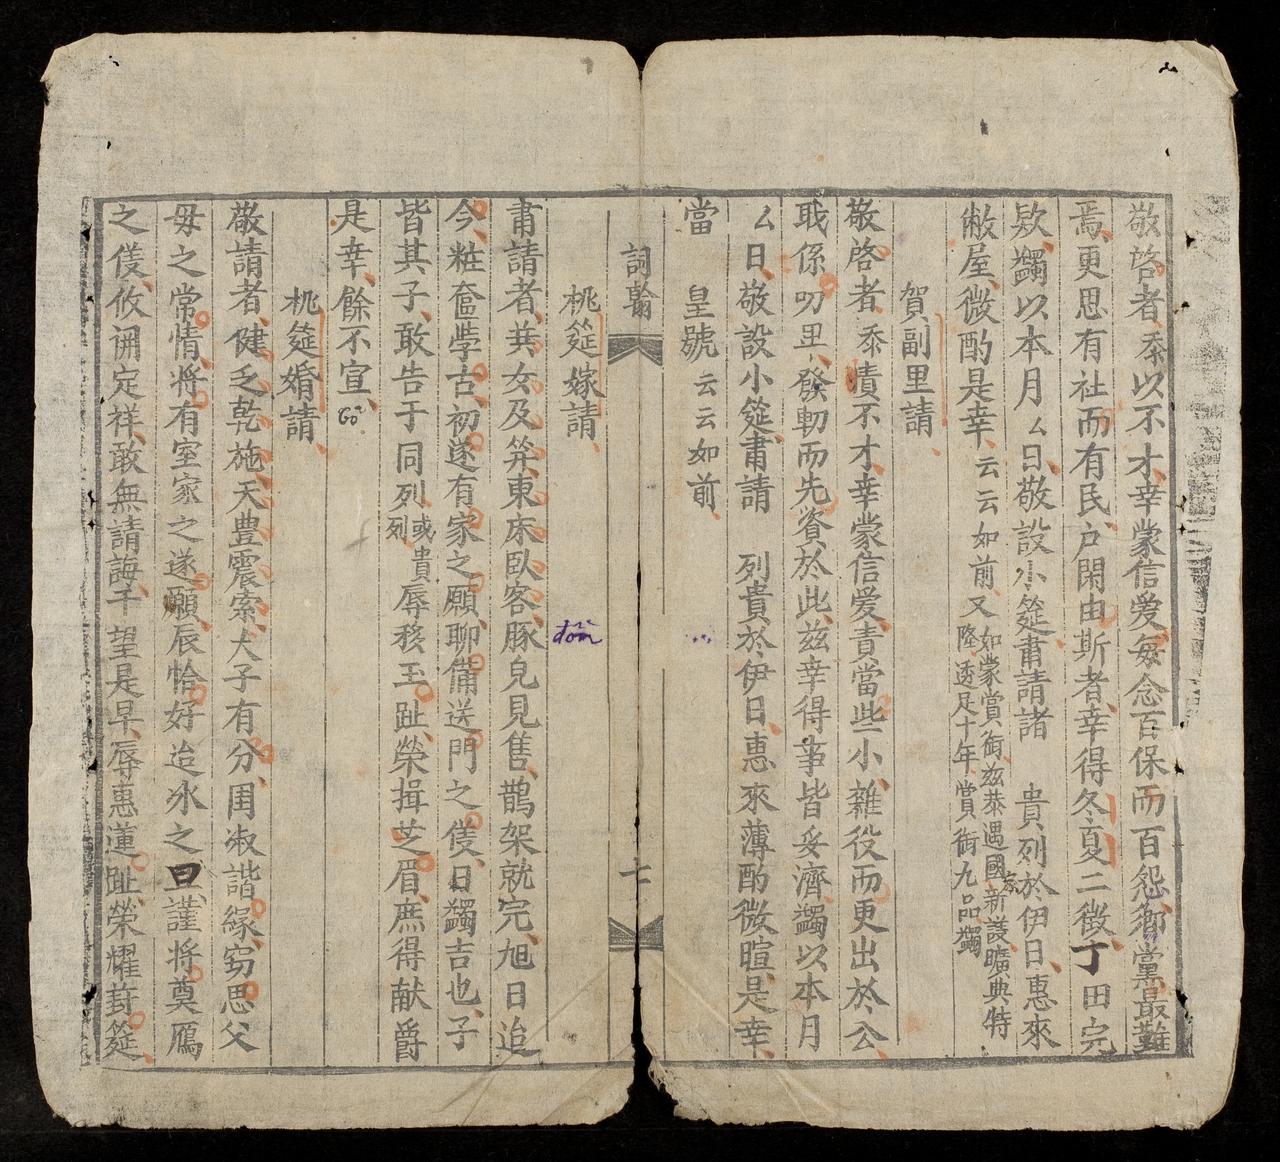 敬啓者、忝以不才、幸蒙信爱、每念百保而百怨、鄉黨最難
焉、更思有社而有民、户閑由斯者、幸得冬夏二徴、丁田完
欵、蠲以本月厶日、敬設小筵、肅請諸　貴列於伊日、惠來
敝屋、微酌是幸、云云如前、又如蒙賞銜、兹恭遇國家新䕶曠典、特隆透足十年、賞銜九品、蠲
賀副里請、
敬啓者、忝責不才、幸蒙信爱、責當些小、雜役而更出於公、
戢係叨里、發軔而先資於此、兹幸得事皆妥濟、蠲以本月
厶日、敬設小筵、肅請　列貴於伊日、惠來薄酌微暄、是幸、
當　皇號　云云如前、
詞翰
七
桃筵嫁請、
đơn
肅請者、共女及笄、東床臥客、豚皃見售、鵲架就完、旭日迨
今、粧奩學古、初遂有家之願、聊備送門之隻、日蠲吉也、子
皆其子、敢告于同列或貴列辱移玉趾、榮揖芝眉、庶得献爵
是幸、餘不宣、
桃筵婚請、
敬請者、健乏乾施、天豊震索、犬子有分、閨淑諧緣、窃思父
毋之常情、將有室家之遂願、辰恰好迨氷之旦、謹將奠鴈
之俴、攸詶定祥、敢無請誨、千望是早、辱惠蓮趾、榮耀葑筵、